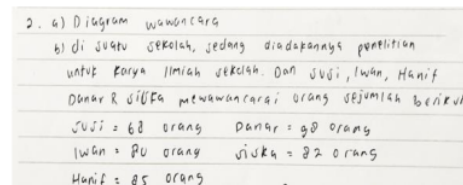 2. a) Diagram wawancara
b) di suatu sekolah, sedang diadakannya penelitian
untuk karya Ilmiah sekolah. Dan susi, Iwan, Hanif
Danar & siska mewawancarai orang sejumlah berikut
susi = 68 orang Danar = 98 orang
Iwan = 80 orang siska = 82 orang
Hanif = 85 orang